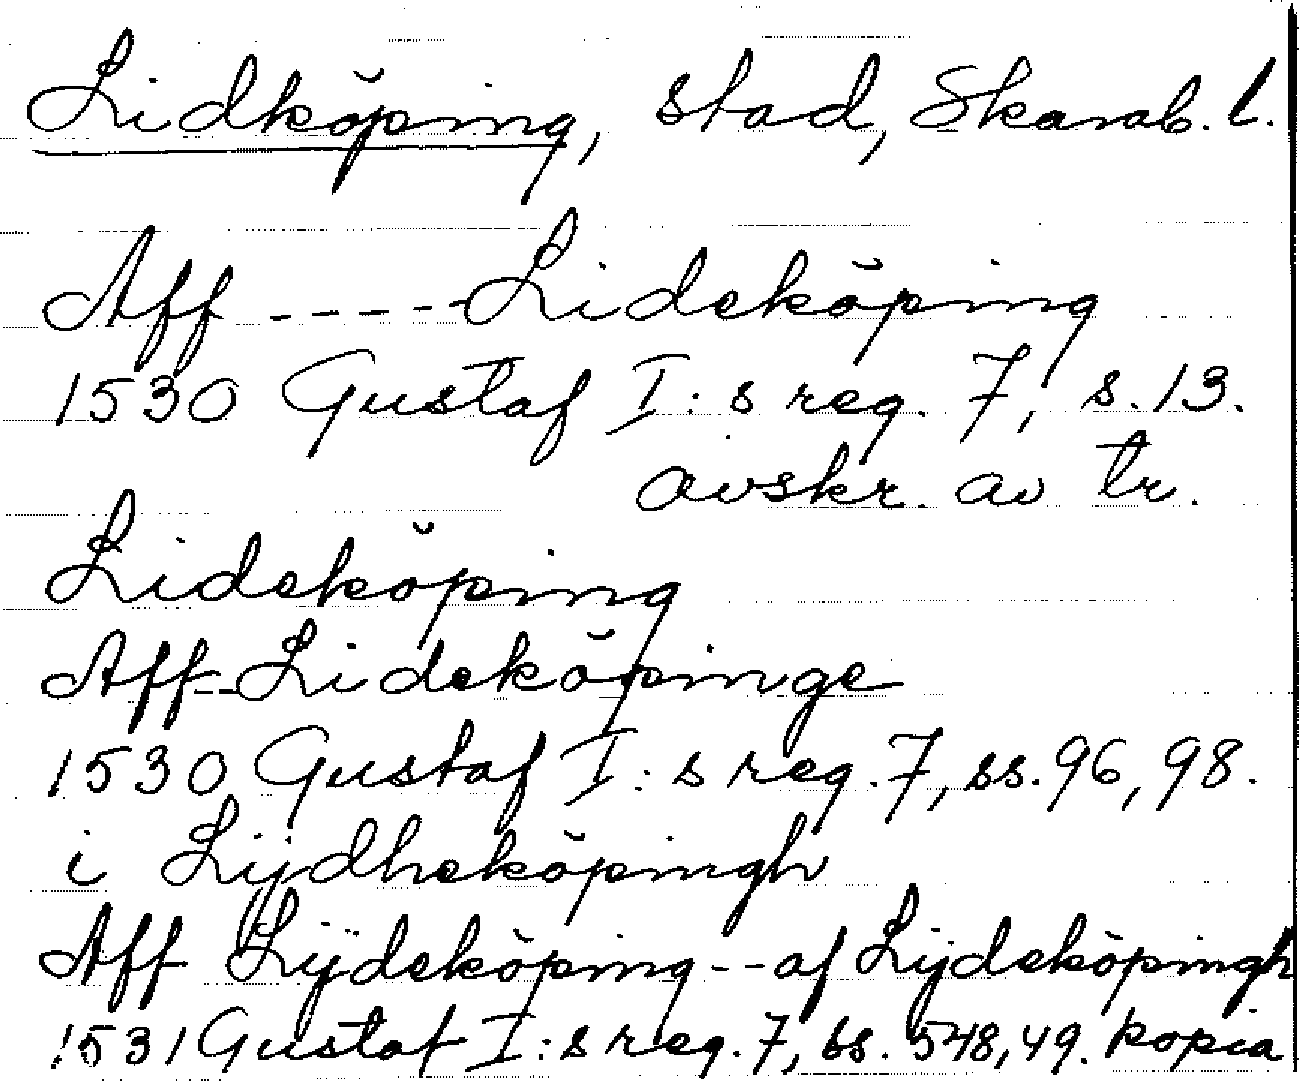 Lidköping, stad, Skarab. l.
Aff ----- Lideköping
1530 Gustaf I:s reg. 7, s. 13.
avskr. av tr.
Lideköping
Aff -- Lideköpinge
1530 Gustaf I:s reg. 7, ss. 96, 98.
i Lijdheköpingh
Aff Lÿdeköping -- af Lijdeköpingh
1531 Gustaf I:s reg. 7, ss. 548, 49. kopia